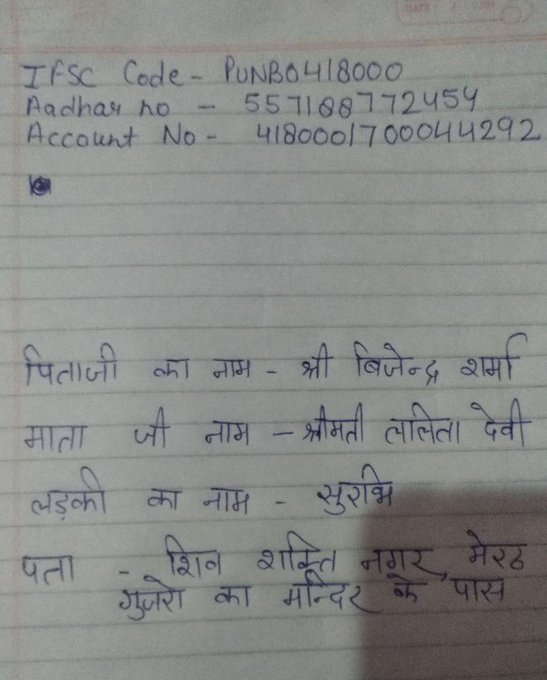 IFSC Code - PUNB0418000
Aadhar no - 557188772454
Account No - 4180001700044292
पिताजी का नाम - श्री बिजेन्द्र शर्मा
माता जी नाम - श्रीमती ललिता देवी
लड़की का नाम - सुरभि
पता - शिव शक्ति नगर, मेरठ
गुजरो का मन्दिर के पास